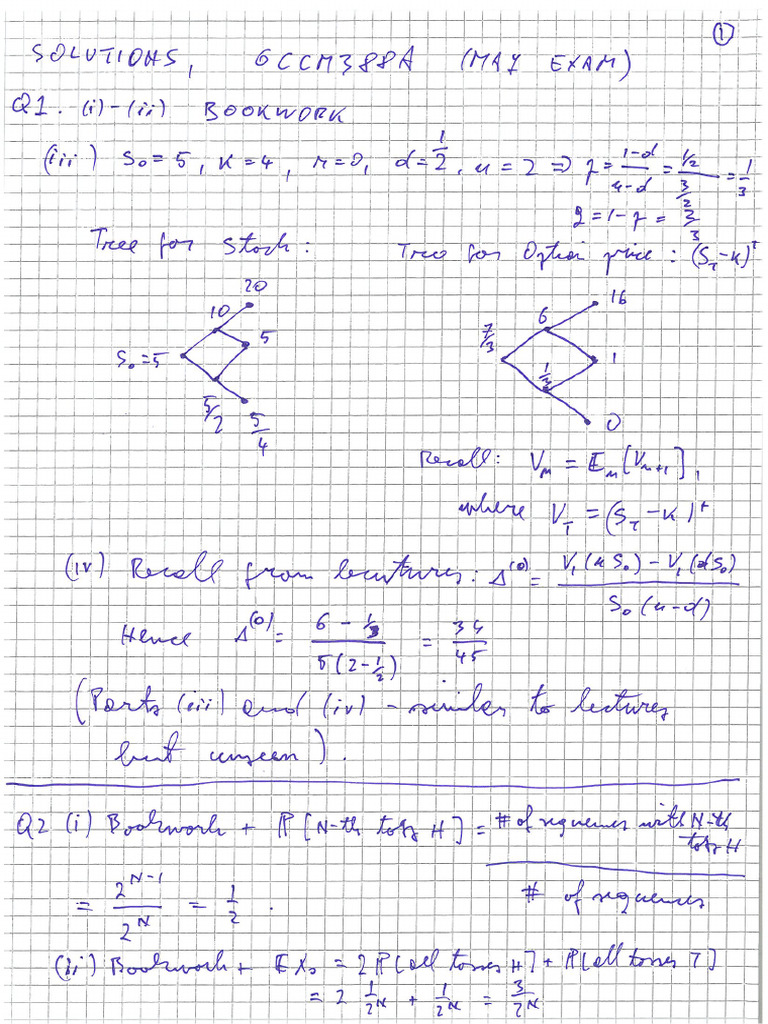 ①
SOLUTIONS, 6CCM388A (MAY EXAM)
Q1. (i)-(ii) BOOKWORK
(iii) S₀=5, K=4, r=0, d=1/2, u=2 ⇒ p = (1-d)/(u-d) = (1/2)/(3/2) = 1/3
q = 1-p = 2/3
Tree for Stock: Tree for Option price: (S_T-K)⁺
20
10
5
S₀=5
5/2
5/4
16
6
7/3
1
1/3
0
Recall: V_n = E_n[V_{n+1}],
where V_T = (S_T-K)⁺
(iv) Recall from lectures: Δ^(0) = (V₁(uS₀) - V₁(dS₀))/(S₀(u-d))
Hence Δ^(0) = (6 - 1/3)/(5(2-1/2)) = 34/45
(Parts (iii) and (iv) - similar to lectures
but unseen).
Q2 (i) Bookwork + P[N-th toss H] = # of sequences with N-th toss H / # of sequences
= 2^{N-1}/2^N = 1/2.
(ii) Bookwork + EX₀ = 2P[all tosses H] + P[all tosses T]
= 2 1/2^N + 1/2^N = 3/2^N